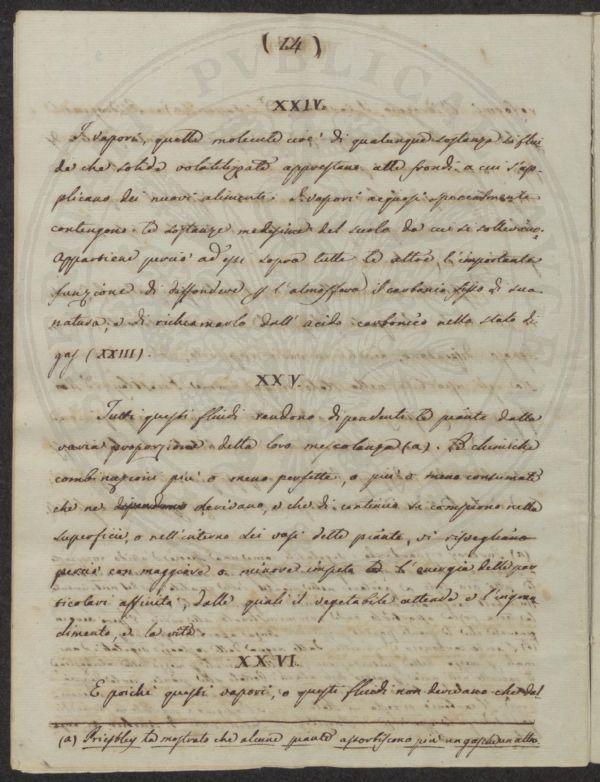 (14)
XXIV.
I vapori, quelle molecule cioè di qualunque sostanza sì flui
da che solida volatilizzate apprestano alle frondi a cui s'ap-
plicano dei nuovi alimenti. I vapori acquosi specialmente
contengono le sostanze medesime del suolo da cui si sollevano.
Appartiene perciò ad essi sopra tutte le altre l'importante
funzione di diffondere p l'atmosfera il carbonio fisso di sua
natura, e di richiamarlo dall'acido carbonico nello stato di
gas (XXIII).
XXV.
Tutti questi fluidi rendono dipendenti le piante dalla
varia proporzione della loro mescolanza (a). Le chimiche
combinazioni più o meno perfette, o più o meno consumate
che ne dipendono derivano, e che di continuo si compiono nella
superficie, o nell'interno dei vasi delle piante, vi risvegliano
perciò con maggiore o minore impeto l'energia delle par
ticolari affinità, dalle quali il vegetabile attende e l'ingran
dimento, e la vita.
XXVI.
E poichè questi vapori, o questi fluidi non derivano che dal
(a) Priestley ha mostrato che alcune piante assorbiscono più un gas che un altro